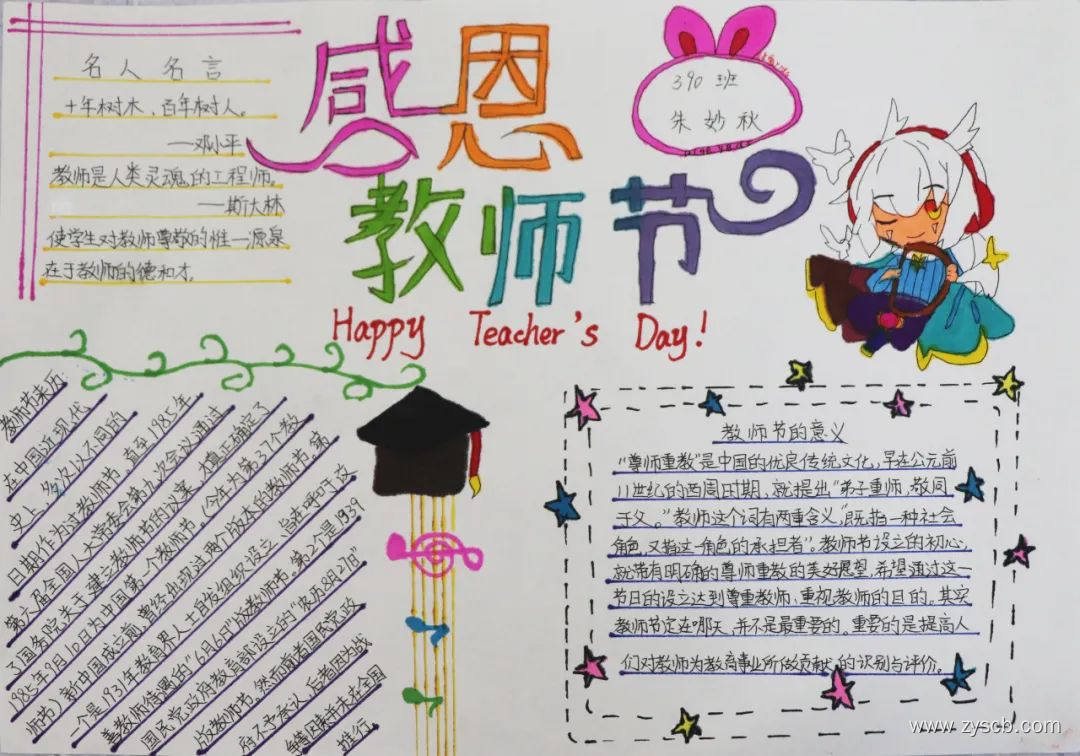 感恩
教师节
Happy Teacher's Day!
390 班
朱妙秋
名人名言
十年树木、百年树人。
—邓小平
教师是人类灵魂的工程师。
—斯大林
使学生对教师尊敬的惟一源泉
在于教师的德和才。
教师节来历:
在中国近现代
史上,多次以不同的
日期作为过教师节,直至1985年,
第六届全国人大常委会第九次会议通过
了国务院关于建立教师节的议案,才真正确定了
1985年9月10日为中国第一个教师节。(今年为第37个教
师节)新中国成立前,曾经出现过两个版本的教师节,第
一个是1931年教育界人士自发组织设立、旨在呼吁改
善教师待遇的"6月6日"版教师节。第2个是1939
国民党政府教育部设立的"农历8月27日"
版教师节。然而前者国民党政
府不予承认,后者因为战
争等因素并未在全国
推行。
教师节的意义
"尊师重教"是中国的优良传统文化,早在公元前
11世纪的西周时期,就提出"弟子重师,敬同
于父。"教师这个词有两重含义,"既指一种社会
角色,又指这一角色的承担者"。教师节设立的初心,
就带有明确的尊师重教的美好展望,希望通过这一
节日的设立达到尊重教师、重视教师的目的。其实
教师节定在哪天,并不是最重要的。重要的是提高人
们对教师为教育事业所做贡献的识别与评价。
www.zyscb.com